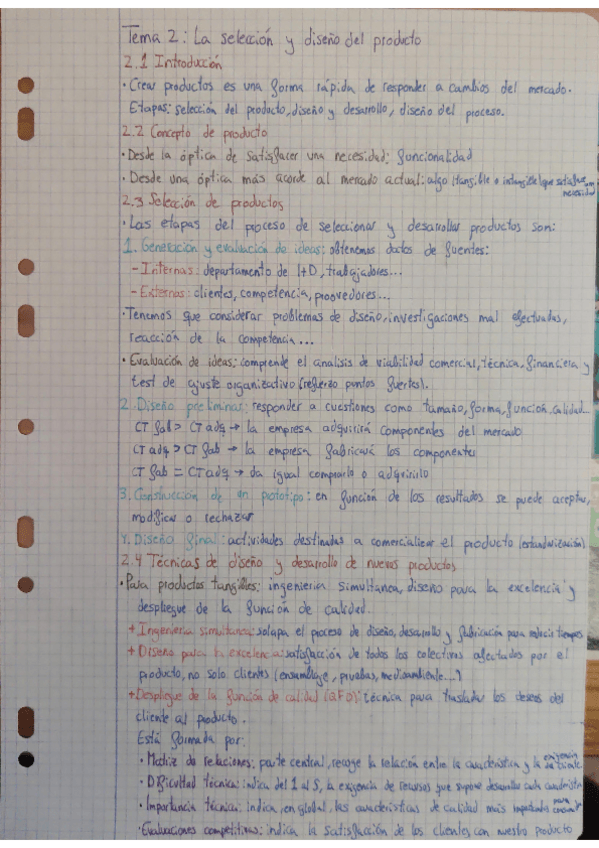 Tema 2: La selección y diseño del producto
2.1 Introducción
· Crear productos es una forma rápida de responder a cambios del mercado.
Etapas: selección del producto, diseño y desarrollo, diseño del proceso.
2.2 Concepto de producto
· Desde la óptica de satisfacer una necesidad: funcionalidad
· Desde una óptica más acorde al mercado actual: algo (tangible o intangible) que satisface una necesidad
2.3 Selección de productos
· Las etapas del proceso de seleccionar y desarrollar productos son:
1. Generación y evaluación de ideas: obtenemos datos de fuentes:
- Internas: departamento de I+D, trabajadores...
- Externas: clientes, competencia, proovedores...
· Tenemos que considerar problemas de diseño, investigaciones mal efectuadas,
reacción de la competencia...
· Evaluación de ideas: comprende el analisis de viabilidad comercial, técnica, financiera y
test de ajuste organizativo (refuerzo puntos fuertes).
2. Diseño preliminar: responder a cuestiones como tamaño, forma, función, calidad...
CT fab > CT adq → la empresa adquirirá componentes del mercado
CT adq > CT fab → la empresa fabricará los componentes
CT fab = CT adq → da igual comprarlo o adquirirlo
3. Construcción de un prototipo: en función de los resultados se puede aceptar,
modificar o rechazar
4. Diseño final: actividades destinadas a comercializar el producto (estandarización)
2.4 Técnicas de diseño y desarrollo de nuevos productos
· Para productos tangibles: ingenieria simultanea, diseño para la excelencia y
despliegue de la función de calidad.
+ Ingenieria simultanea: solapa el proceso de diseño, desarrollo y fabricación para reducir tiempos
+ Diseño para la excelencia: satisfacción de todos los colectivos afectados por el
producto, no solo clientes (ensamblaje, pruebas, medioambiente...)
+ Despliegue de la función de calidad (QFD): técnica para trasladar los deseos del
cliente al producto.
Está formada por:
· Matriz de relaciones: parte central, recoge la relación entre la característica y la exigencia del cliente
· Dificultad técnica: indica del 1 al 5, la exigencia de recursos que supone desarrollar cada característica
· Importancia técnica: indica, en global, las características de calidad más importantes para
· Evaluaciones competitivas: indica la satisfacción de los clientes con nuestro producto